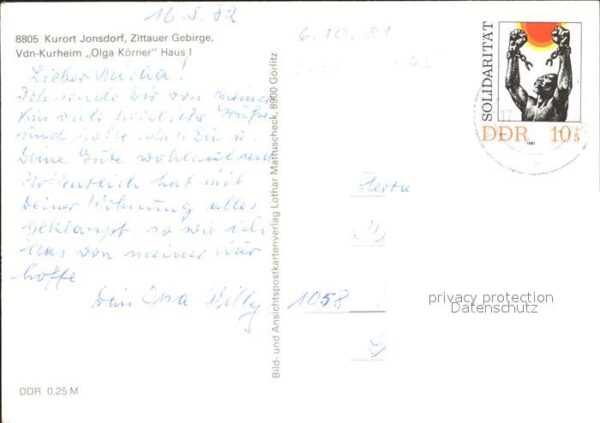 16.5.82
8805 Kurort Jonsdorf, Zittauer Gebirge,
Vdn-Kurheim „Olga Körner" Haus I
6.10.81
Lieber Micha!
Ich sende Dir von meiner
Kur viele herzliche Grüße
und hoffe daß Du u.
Deine Gute wohlauf seid
Hoffentlich hat mit
Deiner Wohnung alles
geklappt, so wie ich
das von meiner Kur
hoffe
Dein Opa Willy
DDR 0,25 M
Bild- und Ansichtspostkartenverlag Lothar Mattuscheck, 8900 Görlitz
SOLIDARITÄT
DDR 10
1981
Herrn
1058
privacy protection
Datenschutz